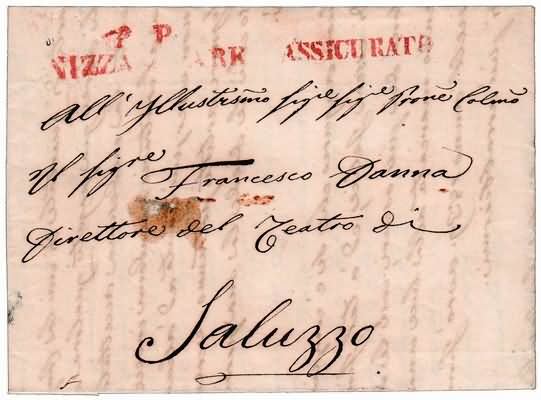 P P
NIZZA MARE ASSICURATO
All' Illustrismo sigre sigre Prone Colmo
Il sigre Francesco Danna
Direttore del Teatro di
Saluzzo